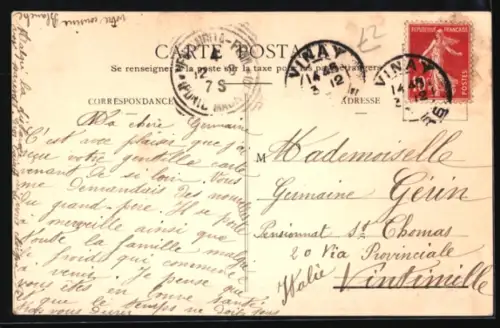 votre cousine
Blanche
CARTE POSTALE
Se renseigner à la poste sur la taxe pour les pays étrangers
CORRESPONDANCE
ADRESSE
REPUBLIQUE FRANÇAISE
POSTES
VINAY
14
12
VINAY
14
12
7 S
22
Ma chère Germaine
C'est avec plaisir que j'ai
reçu votre gentille carte
venant de si loin. Vous
me demandais des nouvelles
du grand-père. Il se porte
à merveille ainsi que
toute la famille malgré
le froid qui commence
à venir. Je pense que
vous êtes en bonne santé
et que le temps ne doit pas
vous durer
M Mademoiselle
Germaine Gérin
Pensionnat St Thomas
20 Via Provinciale
Italie Vintimille